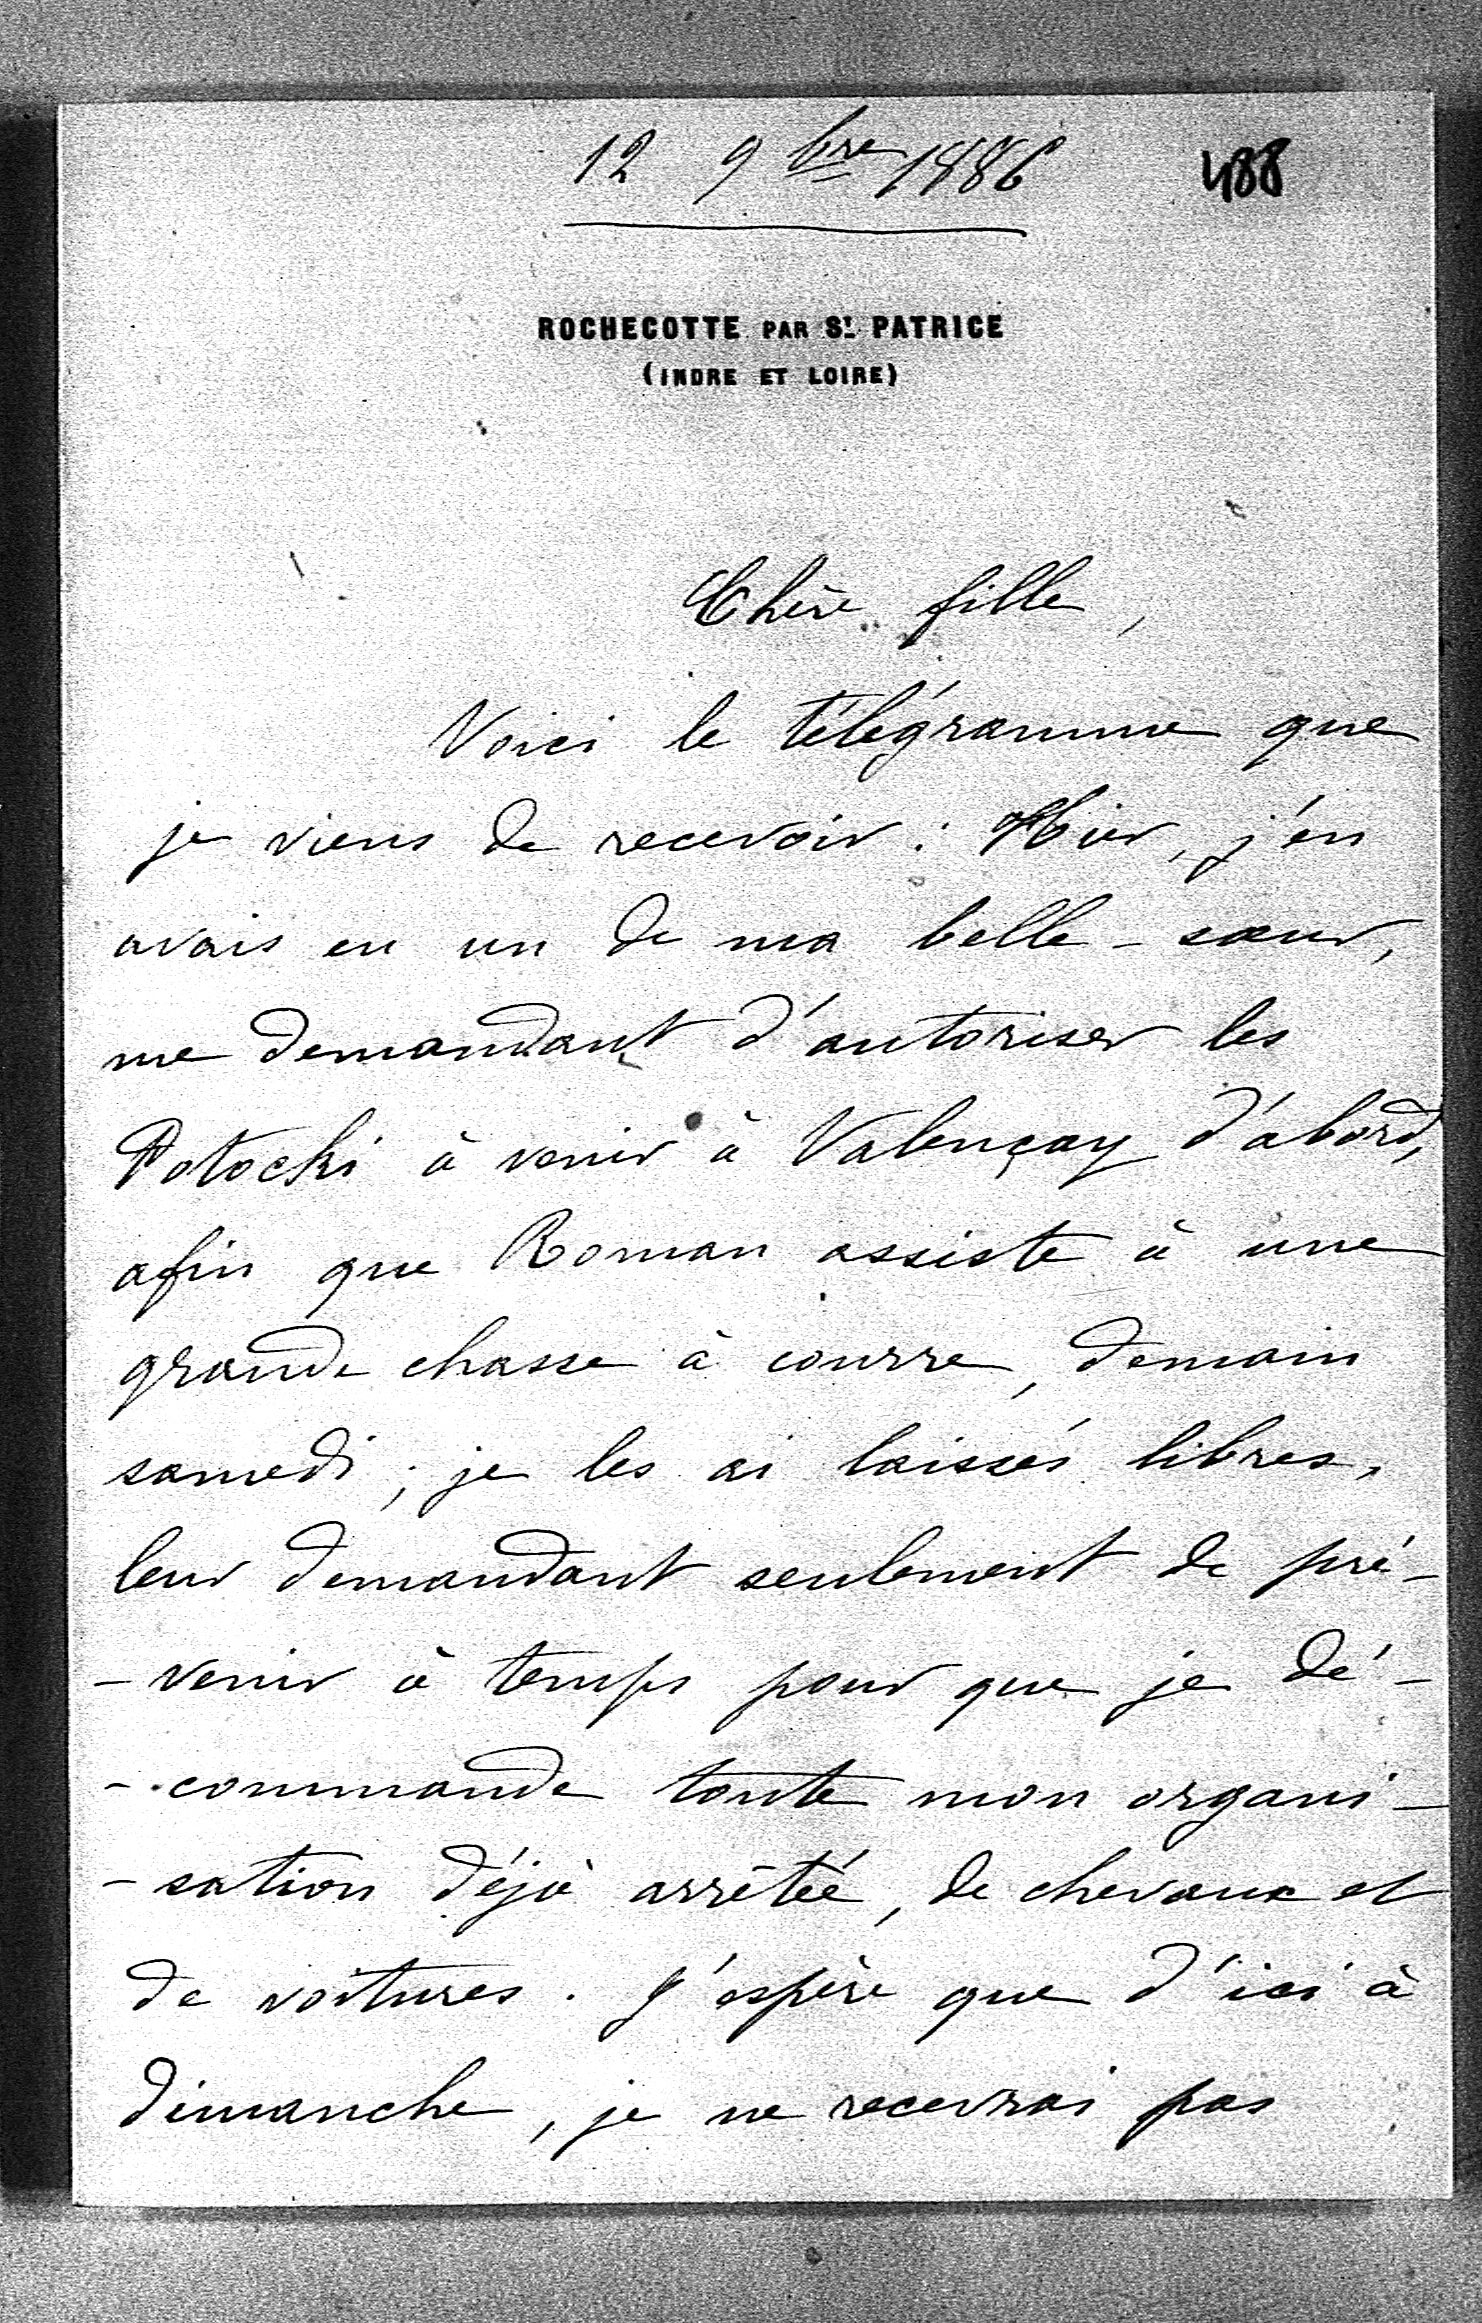 12 9bre 1886
488
ROCHECOTTE PAR ST PATRICE
(INDRE ET LOIRE)
Chère fille,
Voici le télégramme que
je viens de recevoir : Hier, j'en
avais eu un de ma belle-sœur,
me demandant d'autoriser les
Potocki à venir à Valençay d'abord,
afin que Roman assiste à une
grande chasse à courre, demain
samedi ; je les ai laissés libres,
leur demandant seulement de pré-
-venir à temps pour que je dé-
-commande toute mon organi-
-sation déjà arrêtée, de chevaux et
de voitures. J'espère que d'ici à
dimanche, je ne recevrai pas